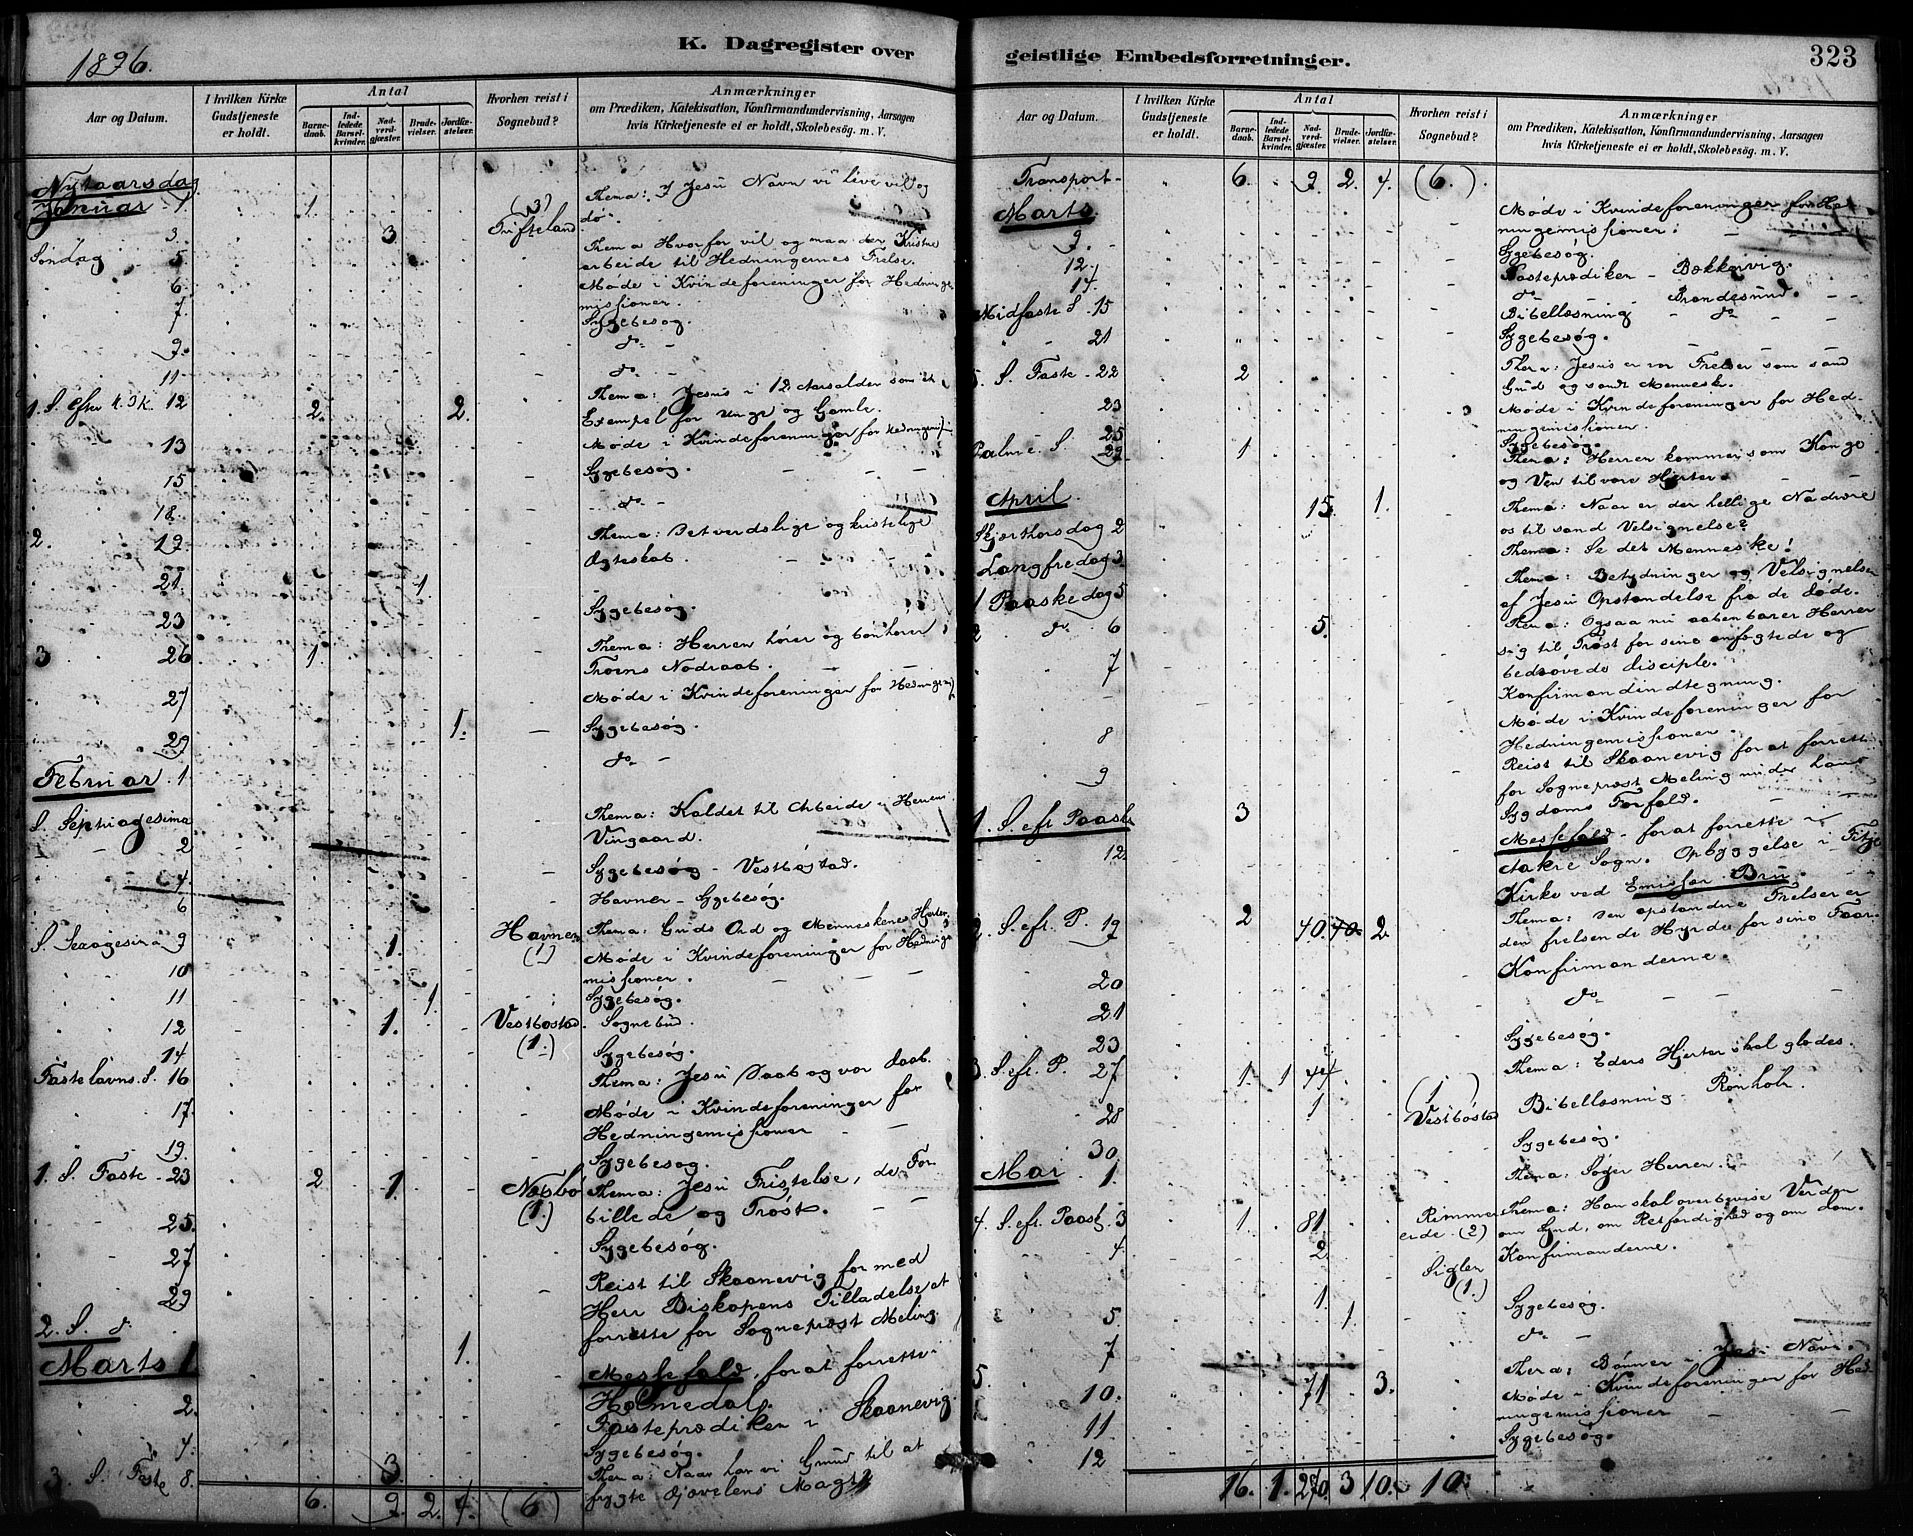 1896.
K. Dagregister over
Aar og Datum.
I hvilken Kirke Gudstjeneste er holdt.
Antal
Barnedaab.
Indledede Barselkvinder.
Nadverdgjæster.
Brudevielser.
Jordfæstelser.
Hvorhen reist i Sognebud?
Anmærkninger
om Prædiken, Katekisation, Konfirmandundervisning, Aarsagen
hvis Kirketjeneste ei er holdt, Skolebesøg. m. V.
Nytaarsdag
Januar 1 1 Thema: I Jesu Navn vi leve vil og
dø.
3. 3 (3)
Søndag 5 Thema Hvorfor vil og maa der Kristne
arbeide til Hedningernes Frelse.
6. Møde i Kvindeforeninger for Hedninge
missioner.
7. Sygebesøg.
9. do
11 do
1. S. efter H. 3 K. 12 2. 2. Thema: Jesus i 12 Aarsalder som et
Exempel for unge og Gamle.
13 Møde i Kvindeforeninger for Hedningemiss
15 Sygebesøg.
18. do
2. 19 Thema: Det verdslige og kristelige
Ægteskab.
21 1
23 Sygebesøg.
3 26 1. Thema: Herren hører og bønhører
Troens Nødraab.
27 Møde i Kvindeforeninger for Hedningem
29 1. Sygebesøg.
do
Februar 1
S. Septuagesima Thema: Kaldet til Arbeide i Herrens
2 Vingaard.
4. Sygebesøg - Vestbøstad.
6 Havner - Sygebesøg.
S. Sexagesima 9 1. Havnen (1) Thema: Guds Ord og Menneskenes Hjerter
10 Møde i Kvindeforeninger for Hedninge
missioner.
11 1 Sygebesøg.
12 1. Vestbøstad (1.) Sognebud.
14 Sygebesøg.
Fastelavns. S. 16 Thema: Jesu Daab og vor daab.
17. Møde i Kvindeforeninger for
Hedningemissioner
19. Sygebesøg.
1. S. Faste - 23 2 1. Næsbø (1.) Thema: Jesu Fristelse, de For
25. billede og Trøst.
27 Sygebesøg.
29 Reist til Skaanevig for med
Herr Biskopens Tilladelse at
2. S. d. forrette for Sogneprest Meling
Marts 1 1. Messefald, for at forrette i
2. Holmedal.
Fasteprædiken i Skaanevig.
4. Sygebesøg.
3. S. i Faste 8. 3. Thema: Naar har vi Grund til at
frygte Djævelens Magt?
6. 9. 2. 4. (6)
geistlige Embedsforretninger.
323
Aar og Datum.
I hvilken Kirke Gudstjeneste er holdt.
Antal
Barnedaab.
Indledede Barselkvinder.
Nadverdgjæster.
Brudevielser.
Jordfæstelser.
Hvorhen reist i Sognebud?
Anmærkninger
om Prædiken, Katekisation, Konfirmandundervisning, Aarsagen
hvis Kirketjeneste ei er holdt, Skolebesøg. m. V.
Transport 6. 9. 2. 4. (6.)
Marts Møde i Kvindeforeninger for Hed
ningemissioner.
9. Sygebesøg.
12. Fasteprædiken - Bækkervig.
14 do Brandesund.
Midfaste S. 15 Bibellæsning do
21 Sygebesøg.
5. S. Faste - 22 2 Thema: Jesus er vor Frelser som sand
Gud og sandt Menneske.
23 Møde i Kvindeforeninger for Hed
ningemissioner.
25 Sygebesøg.
Palme S. 29 1 Thema: Herren kommer som Konge
og Ven til vore Hjerter.
April
Skjærthorsdag 2 15 1. Thema: Naar er der hellige Nadvere
os til sand Velsignelse?
Langfredag 3 Thema: Se det Menneske!
1 Paaskedag 5 Thema: Betydninger og Velsignelser
af Jesu Opstandelse fra de døde.
2 do 6 5. Thema: Ogsaa nu aabenbarer Herrer
sig til Trøst for sine anfægtede og
7 bedrøvede disciple.
Konfirmandindtegning.
Møde i Kvindeforeninger for
8 Hedningemissioner.
9 Reist til Skaanevig for at forrette
for Sogneprest Meling under hans
Sygdoms Forfald.
1. S. eft. Paaske 3 Messefald - for at forrette i
12. Aakre Sogn. Opbyggelse i Fitje
Kirke ved Emissær Bru.
2. S. eft. P. 19 2 40. 40. 2. Thema: Den opstandne Frelser er
den frelsende Hyrde for sine Faar.
20 Konfirmanderne.
21 do
23 Sygebesøg.
3. S. eft. P. 27 1. 1 44 Thema: Eders Hjerter skal glædes.
28 1 (1) Vestbøstad Bibellæsning - Rønholn.
30. Sygebesøg.
Mai 1. Thema: Søger Herren.
4. S. eft. Paask. 3 1. 81 Rimmereide. (2) Thema: Han skal overbevise Verden
om Synd, om Retfærdighed og om dom.
4. 2. Siglen (1.) Konfirmanderne.
5 1. 1 Sygebesøg.
7 do
5 10. 71 3. Thema: Bønner i Jesu Navn.
11. Møde i Kvindeforeninger for Hed
ningemissioner
12 Sygebesøg.
16. 1. 270. 3 10. 10.